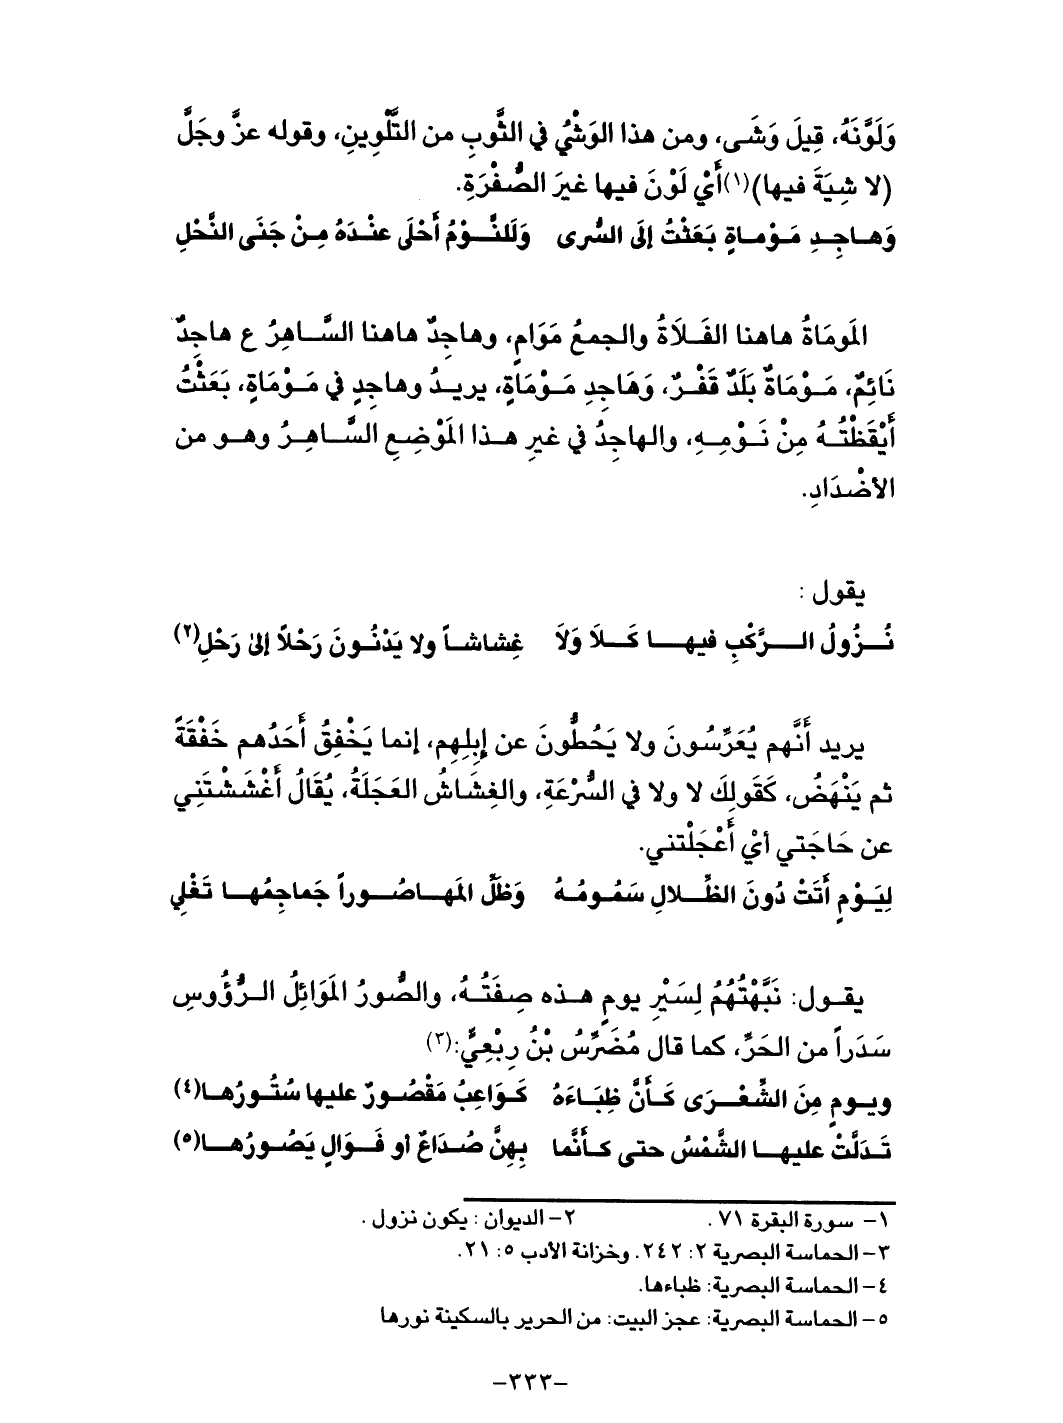 وَلَوَّنَهُ، قِيلَ وَشَى، ومن هذا الوَشْيُ في الثَّوبِ من التَّلْوِينِ، وقوله عزَّ وجَلَّ
(لا شِيَةَ فيها)(١)أَيْ لَوْنَ فيها غيرَ الصُّفْرَةِ.
وَهـاجِـدِ مَـوْمـاةٍ بَعَثْتُ إلَى السُّرى وَلَلنَّـوْمُ أَحْلَى عنْـدَهُ مِـنْ جَنَى النَّحْلِ
المَومَاةُ هاهنا الفَـلَاةُ والجمعُ مَوَامٍ، وهاجِدٌ هاهنا السَّـاهِرُ ع هاجِدٌ
نَائِمٌ، مَـوْمَاةٌ بَلَدٌ قَفْـرٌ، وَهَاجِدِ مَـوْمَاةٍ، يريـدُ وهاجِدٍ في مَـوْمَاةٍ، بَعَثْتُ
أَيْقَظْتُـهُ مِنْ نَـوْمِـهِ، والهاجِدُ في غيرِ هـذا المَوْضِعِ السَّـاهِـرُ وهـو من
الأضْدَادِ.
يقول :
نُـزُولُ الـرَّكْبِ فيهـا كَـلَا وَلَا غِشاشـاً ولا يَدْنُـونَ رَحْلاً إلىٰ رَحْلِ(٢)
يريد أَنَّهم يُعَرِّسُونَ ولا يَحُطُّونَ عن إبِلِهِم، إنما يَخْفِقُ أَحَدُهم خَفْقَةً
ثم يَنْهَضُ، كَقَولِكَ لا ولا في السُّرْعَةِ، والغِشَاشُ العَجَلَةُ، يُقَالُ أَغْشَشْتَنِي
عن حَاجَتي أيْ أَعْجَلْتني.
لِيَـوْمٍ أَتَتْ دُونَ الظِّـلالِ سَمُـومُـهُ وَظَلَّ المَهـاصُـوراً جَماجِمُهـا تَغْلِي
يقـول: نَبَّهْتُهُمْ لِسَيْرِ يومٍ هـذه صِفَتُـهُ، والصُّورُ المَوَائِلُ الـرُّؤُوسِ
سَدَراً من الحَرِّ، كما قال مُضَرِّسُ بْنُ رِبْعِيٍّ:(٣)
ويـومٍ مِنَ الشِّعْـرَى كَـأَنَّ ظِبَـاءَهُ كَـوَاعِبُ مَقْصُـورٌ عليها سُتُـورُهـا(٤)
تَـدَلَّتْ عليهـا الشَّمْسُ حتى كـأَنَّما بِهِنَّ صُـدَاعٌ أو فَـوَالٍ يَصُـورُهـا(٥)
١– سورة البقرة ٧١ . ٢– الديوان : يكون نزول .
٣– الحماسة البصرية ٢: ٢٤٢. وخزانة الأدب ٥: ٢١.
٤– الحماسة البصرية: ظباءها.
٥– الحماسة البصرية: عجز البيت: من الحرير بالسكينة نورها
–٣٣٣–